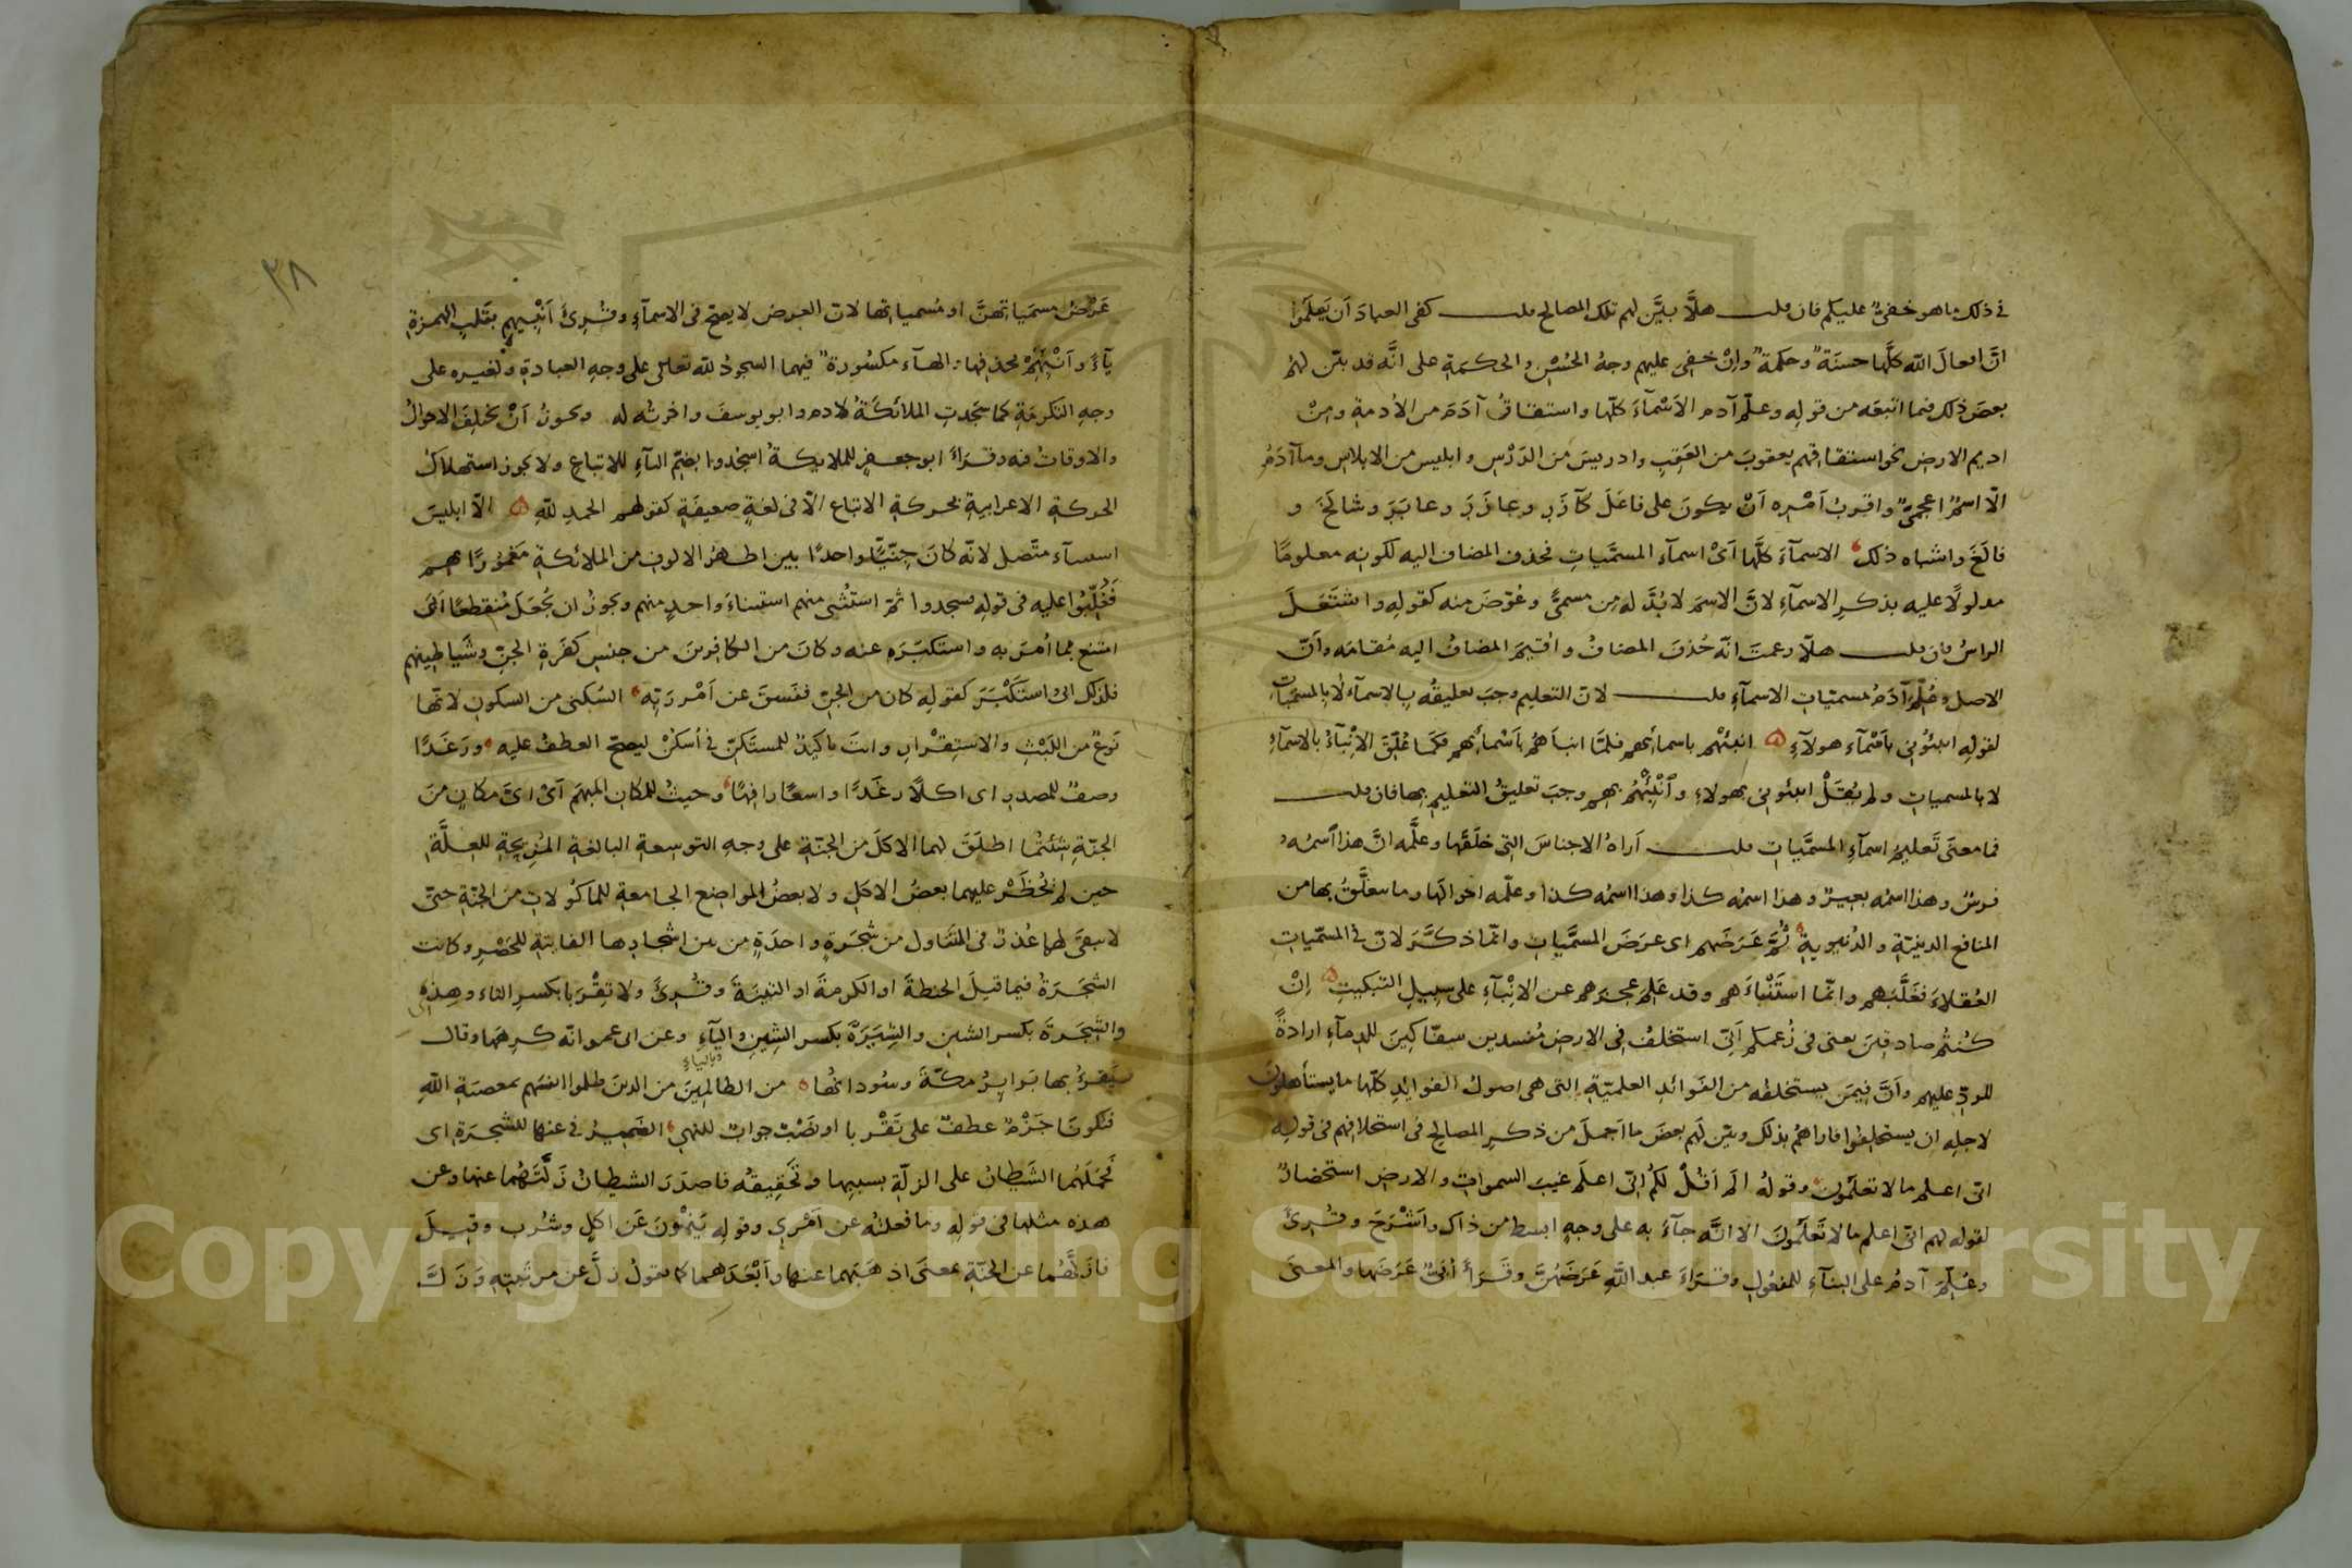 في ذلك ما هو خفيٌّ عليكم فان قلت هلَّا بيَّن لهم تلك المصالح قلت كفى العبادَ اَن يَعلَموا
انَّ افعالَ الله كلَّها حسنَة وحكمة وانْ خفِيَ عليهم وجهُ الحُسْنِ والحكمَةِ على انَّه قد بيّن لهُم
بعضَ ذلك فيما اتبعَه من قولِه وعلّم آدم الاَسْمآءَ كلّها واستقاقُ آدَمَ من الاُدمةِ ومِنْ
اديم الارضِ نحو استقاقهم يعقوبَ من العَقِبِ وادريسَ من الدَرْسِ وابليس من الابلاسِ وما آدَمُ
الّا اسمٌ اعجميٌّ واقربُ اَمْرِه اَنْ يكونَ على فاعَلَ كآزَرَ وعازَرَ وعابَرَ وشالَخَ و
فالَغَ واشباه ذلك الاسمآءَ كلَّها اَىْ اسماء المسمَّياتِ فحذف المضاف اليه لكونِه معلومًا
مدلولًا عليه بذكرِ الاسمآءِ لانَّ الاسمَ لا بُدَّ له مِن مسمىً وعُوّضَ منه كقولِه واشتَعَلَ
الراسُ فان قلت هلّا زعمتَ انّه حُذِفَ المضافُ واُقيمَ المضافُ اليه مُقامَه وانّ
الاصل وعُلِّمَ آدَمُ مسمّياتِ الاسمآءِ قلت لانّ التعليم وجبَ تعليقُه بالاسمآء لا بالمسمّيات
لقولِه انبئُونِى باَسْمآء هولآءِ انبئْهُم باسمائهم فلمَّا انبأهُمْ باَسْمائهم فكما عُلِّقَ الاِنْبآءُ بالاسمآءِ
لا بالمسمياتِ ولم يُقَلْ انبئونى بهولاءِ وَاَنْبِئْهُم بهم وجبَ تعليقُ التعليمِ بها فان قلت
فما معنَى تَعليمِه اسمآءِ المسمَّياتِ قلت اَراهُ الاجناسَ التى خلَقَها وعلَّمه انَّ هذا اَسمُهُ
فرسٌ وهذا اسمُه بعيرٌ وهذا اسمُه كذا وهذا اسمُه كذا وعلّمه احوالَها وما يتعلَّقُ بها من
المنافعِ الدينيّةِ والدُنيويةِ ثُمَّ عَرَضَهم اى عرَضَ المسمَّياتِ وانّما ذكَّرَ لانّ في المسمّياتِ
العُقلاءَ فغَلَّبَهم وانّما استَنْباءَهم وقد عَلِمَ عجزَهم عن الاِنْبآءِ على سبيلِ التبكيتِ اِنْ
كُنتُم صادقِينَ يعنى فى زُعمِكم اَنِّى استخلفُ فى الارضِ مُفسدين سفّاكِينَ للدمآءِ ارادةً
للردّ عليهم واَنَّ فِيمَن يستخلفُه من الفَوائدِ العلميّةِ التى هى اصولُ الفوائدِ كلّها ما يستأهلونَ
لاجلِه ان يستخلِفوا فاراهُمْ بذلك وبيّن لَهم بعضَ ما اَجملَ من ذكرِ المصالح فى استخلافِهم فى قولِه
انّى اعلم ما لا تعلَمُون وقولُه الَم اَقُلْ لكُم اِنّى اعلَم غيبَ السمواتِ والارضِ استحضارٌ
لقولِه لهم انّى اعلم ما لا تَعلَمُونَ الا انَّه جآءَ به على وجهٍ ابسطَ من ذاك واَشْرَحَ وقُرِئَ
وعُلِّمَ آدمُ على البنآءِ للمفعُولِ وقرَاءَ عبد اللّهِ عَرَضَهُنَّ وقَرَأَ اُبَىٌّ عَرَضَها والمعنَى
٣٨
عَرْضُ مسمَياتهنَّ او مُسمياتها لان العرضَ لا يصحّ فى الاسمآءِ وقُرِئَ اَنْبِيهِم بقَلبِ الهمزةِ
يآءً وَاَنْبِهِمْ بحذفِها والهآء مكسُورة فيهما السجودُ للّه تعالى على وجهِ العبادةِ ولغيره على
وجهِ التكرمَةِ كما سَجَدتِ الملائكَةُ لادم وابو يوسفَ واخوتُه له ويجوزُ اَنْ تختلِفَ الاحوالُ
والاوقاتُ فيه وقرَاءَ ابو جعفرٍ للملايكةُ اسجُدوا بضَمِّ التآءِ للاتباعِ ولا يجوز استهلاكُ
الحركةِ الاعرابيةِ بحركةِ الاتباع الّا فى لغةٍ ضعيفَةٍ كقولهم الحمدِ للّهِ الّا ابليسَ
استثنآء متّصل لانّه كانَ جِنّيًّا واحدًا بين اظهُرِ الالوفِ من الملائكةِ مَغمُورًا بهم
فَغُلِّبُوا عليه فى قولِه فسجدوا ثمّ استُثنى منهم استثناءَ واحدٍ منهم ويجوزُ ان يُجعَلَ مُنقطعًا اَبَى
امتنع مما اُمرَ به واستكبَرَ عنه وكانَ من الكافرينَ من جنسِ كفَرةِ الجنِّ وشَياطينِهم
فلذلك ابى واستَكْبَرَ كقولِه كان من الجنِّ ففسَقَ عن اَمْرِ رَبِّه السُكنى من السكونِ لانّها
نَوعٌ من اللَبْثِ والاستِقْرارِ وانتَ تاكيدٌ للمستكِنِّ فى اُسكُنْ ليصحّ العطفُ عليه ورَغَدًا
وصفٌ للمصدرِ اى اكلًا رغَدًا واسعًا رافِهًا وحيثُ للمكانِ المبهَمِ اَىْ اىَّ مكانٍ مِنَ
الجنّةِ شِئتُما اطلَقَ لهما الاكلَ من الجنّةِ على وجهِ التوسعةِ البالغةِ المُزِيحةِ للعِلَّةِ
حين لم يُحْظَرْ عليهما بعضُ الاكلِ ولا بعضُ المواضِعِ الجامعةِ للمأكُولاتِ مِنَ الجنّةِ حتّى
لا يبقَى لهما عُذرٌ فى التَناولِ من شجَرةٍ واحدَةٍ من بين اشجارِها الفايتةِ للحَصْرِ وكانت
الشجَرَةُ فيما قيلَ الحنطةَ او الكرمةَ او التينَةَ وقُرِئَ ولا تِقْرَبا بكسرِ التاء وهذِى
والشِجَرةَ بكسر الشينِ والشِيَرَةَ بكسر الشِينِ واليآءِ وعن ابى عمرو انّه كرِهَها وقال
يَقرَءُ بها بَرابِرُ مكّةَ وسُودانُها من الظالمِينَ من الذينَ ظلموا انفسَهم بمعصيَةِ اللّهِ
فتكونَا جَزْمٌ عطفٌ على تَقْرَبا او نَصْبٌ جوابٌ للنهىِ الضميرُ فى عنها للشجرَةِ اى
فحَملَهُما الشَيطانُ على الزلّةِ بسببِها وتَحْقِيقُه فاصدَرَ الشيطانُ زَلَّتَهُما عنها وعن
هذه مثلها فى قولِه وما فعلتُه عن اَمْرِى وقولِه يَنهَوْنَ عَن اكلٍ وشُربٍ وقيلَ
فازَلَّهُما عن الجنّةِ بمعنَى اذهَبَهما عنها واَبْعَدَهما كما تقولُ زلَّ عن مرتَبتِه وَزَلَّ
Copyright © King Saud University